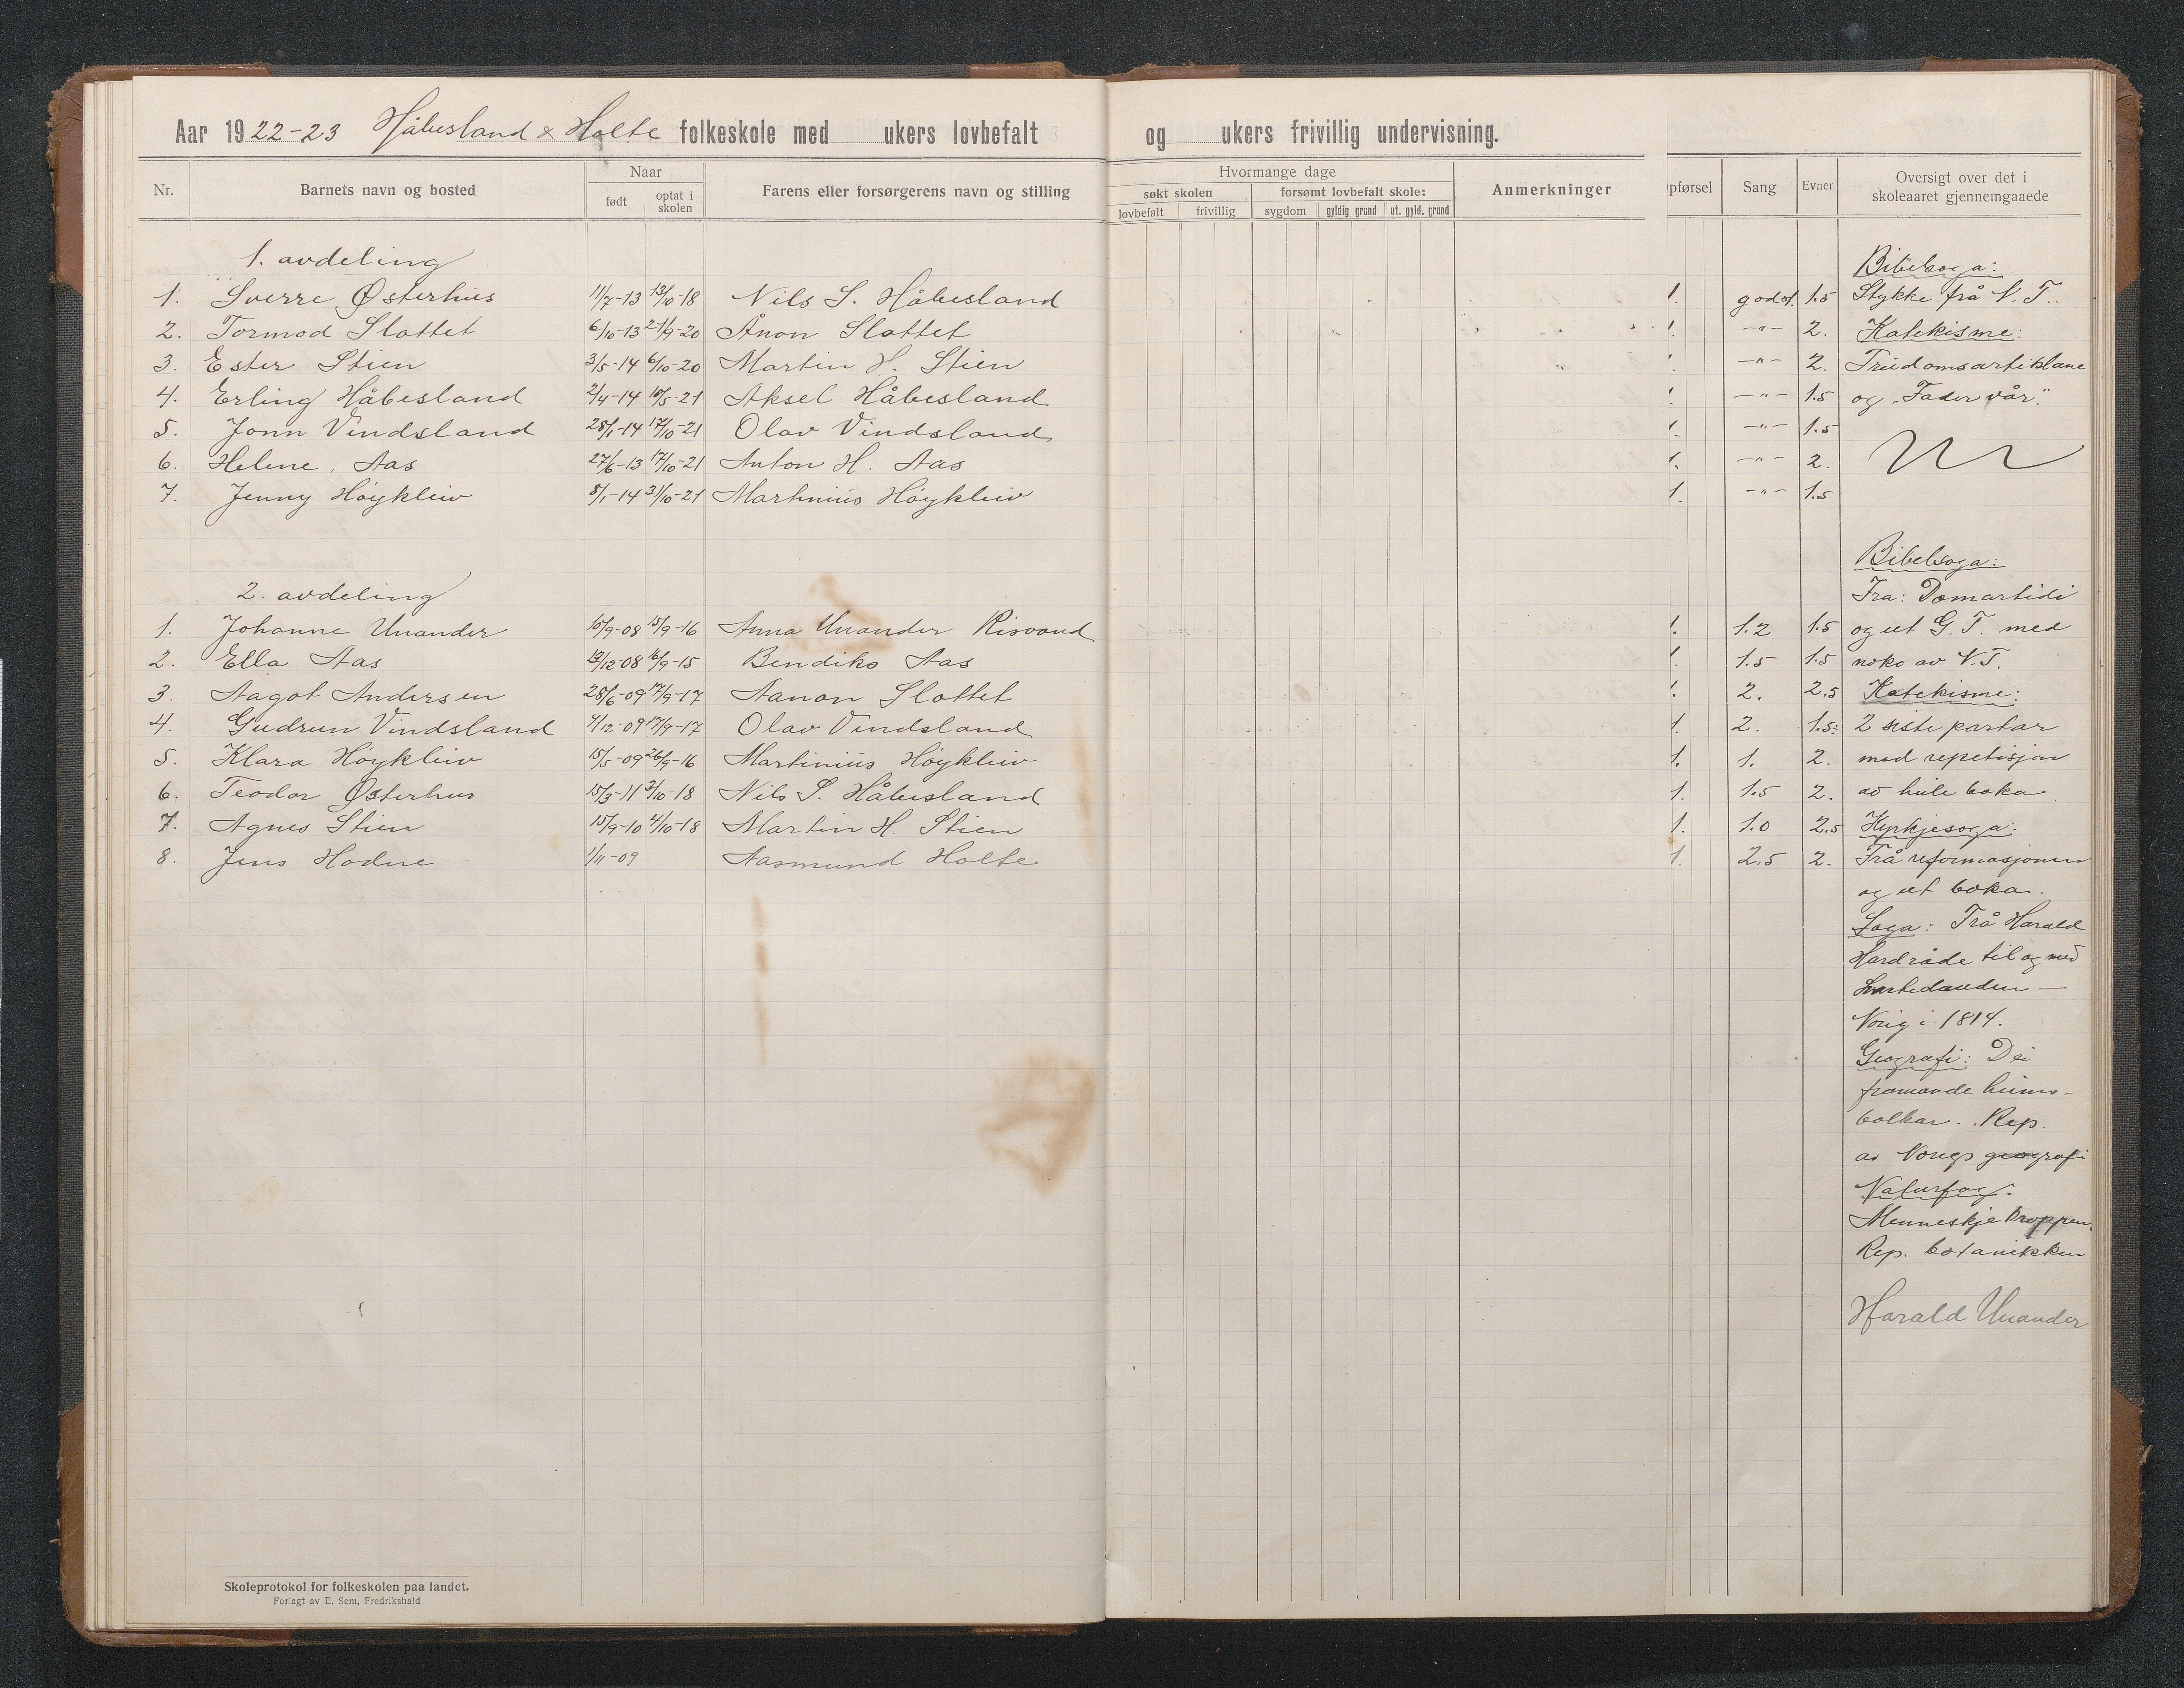 Aar 1922-23 Håbesland & Holte folkeskole med ukers lovbefalt og ukers frivillig undervisning.
Nr. Barnets navn og bosted Naar født optat i skolen Farens eller forsørgerens navn og stilling
Hvormange dage
søkt skolen forsømt lovbefalt skole: Anmerkninger
lovbefalt frivillig sygdom gyldig grund ut. gyld. grund
pførsel Sang Evner Oversigt over det i skoleaaret gjennemgaaede
1. avdeling
1. Sverre Østerhus 11/7-13 13/10-18 Nils S. Håbesland 1. godt. 1.5
2. Tormod Slottet 6/10-13 21/9-20 Ånon Slottet 1. -"- 2.
3. Ester Stien 3/5-14 6/10-20 Martin H. Stien 1. -"- 2.
4. Erling Håbesland 2/4-14 10/5-21 Aksel Håbesland 1. -"- 1.5
5. Jonn Vindsland 28/1-14 17/10-21 Olav Vindsland 1. -"- 1.5
6. Helene Aas 27/6-13 17/10-21 Anton H. Aas 1. -"- 2.
7. Jenny Höykleiv 8/1-14 31/10-21 Martinius Höykleiv 1. -"- 1.5
2. avdeling
1. Johanne Unander 10/9-08 15/9-16 Anna Unander Risvand 1. 1.2 1.5
2. Ella Aas 12/12-08 16/9-15 Bendiks Aas 1. 1.5 1.5
3. Aagot Andersen 28/6-09 17/9-17 Aanon Slottet 1. 2. 2.5
4. Gudrun Vindsland 4/12-09 17/9-17 Olav Vindsland 1. 2. 1.5
5. Klara Höykleiv 15/5-09 26/9-16 Martinius Höykleiv 1. 1. 2.
6. Teodor Østerhus 15/3-11 3/10-18 Nils S. Håbesland 1. 1.5 2.
7. Agnes Stien 15/9-10 4/10-18 Martin H. Stien 1. 1.0 2.5
8. Jens Hodne 1/11-09 Aasmund Holte 1. 2.5 2.
Bibelsoga:
Stykke frå N. T.
Katekisme:
Trudomsartiklane
og "Fader vår".
Bibelsoga:
Fra: Domartidi
og ut G. T. med
noko av N.T.
Katekisme:
2 siste partar
med repetisjon
av heile boka
Kyrkjesoga:
Frå reformasjonen
og ut boka.
Soga: Frå Harald
Hardråde til og med
Svartedauden —
Norig i 1814.
Geografi: Dei
framande heims-
bolkar. Rep.
av Norigs geografi
Naturfag:
Menneskjekroppen.
Rep. botanikken
Harald Unander
Skoleprotokol for folkeskolen paa landet.
Forlagt av E. Sem, Fredrikshald